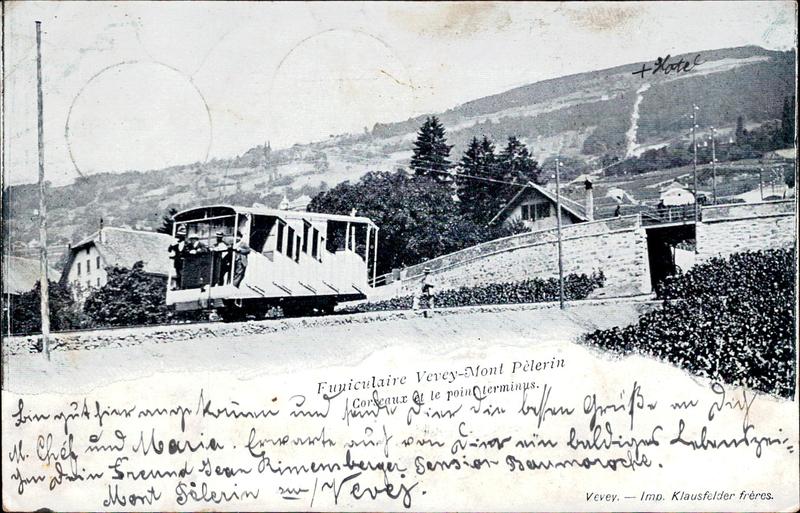 + Hotel
Funiculaire Vevey-Mont Pèlerin
Corseaux et le point terminus.
bin gut hier angekommen und sende Dier die besten Grüße an Dich
M. Chéf und Maria. Erwarte auch von Dier ein baldiges Lebenszei-
gen Dein Freund Jean Rimensberger Pension
Mont Pèlerin sur/Vevey.
Vevey. — Imp. Klausfelder frères.